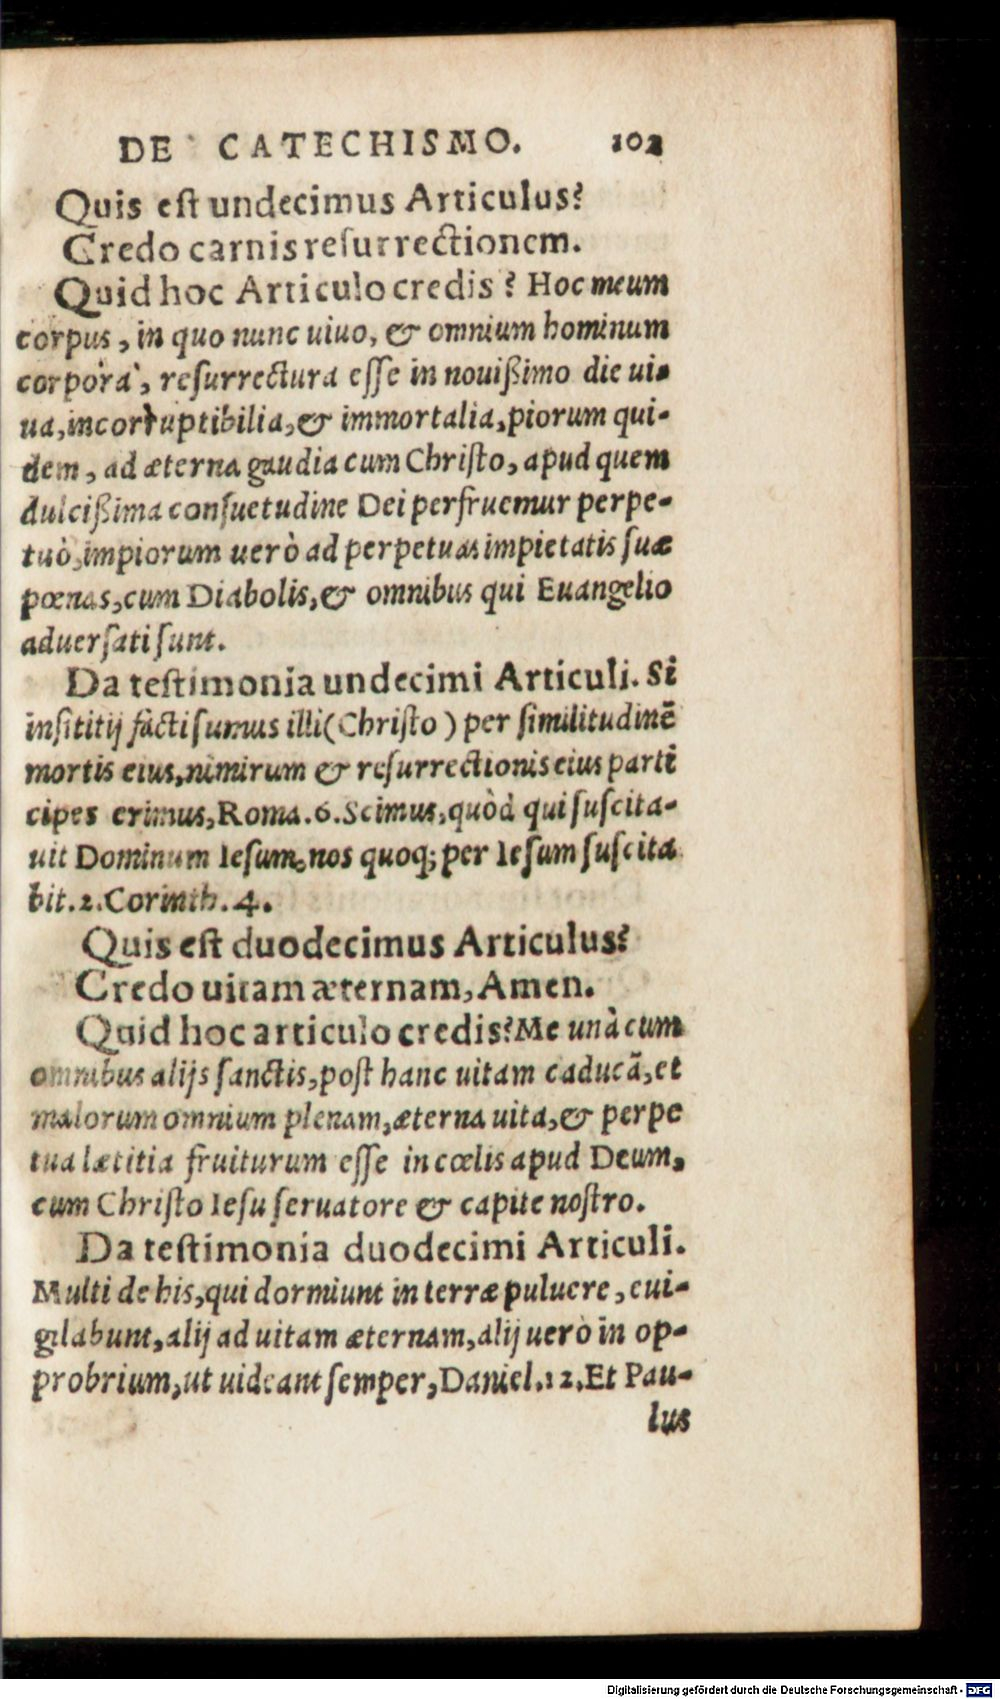 DE CATECHISMO. 102
Quis eſt undecimus Articulus?
Credo carnis reſurrectionem.
Quid hoc Articulo credis? Hoc meum
corpus, in quo nunc uiuo, & omnium hominum
corpora, reſurrectura eſſe in nouißimo die ui-
ua, incorruptibilia, & immortalia, piorum qui-
dem, ad æterna gaudia cum Chriſto, apud quem
dulcißima conſuetudine Dei perfruemur perpe-
tuò, impiorum uerò ad perpetuas impietatis ſuæ
pœnas, cum Diabolis, & omnibus qui Euangelio
aduerſati ſunt.
Da teſtimonia undecimi Articuli. Si
inſititij facti ſumus illi (Chriſto) per ſimilitudinē
mortis eius, nimirum & reſurrectionis eius parti
cipes erimus, Roma. 6. Scimus, quòd qui ſuſcita-
uit Dominum Ieſum, nos quoq; per Ieſum ſuſcita
bit. 2. Corinth. 4.
Quis eſt duodecimus Articulus?
Credo uitam æternam, Amen.
Quid hoc articulo credis? Me unà cum
omnibus alijs ſanctis, poſt hanc uitam caducā, et
malorum omnium plenam, æterna uita, & perpe
tua lætitia fruiturum eſſe in cœlis apud Deum,
cum Chriſto Ieſu ſeruatore & capite noſtro.
Da teſtimonia duodecimi Articuli.
Multi de his, qui dormiunt in terræ puluere, eui-
gilabunt, alij ad uitam æternam, alij uero in op-
probrium, ut uideant ſemper, Daniel. 12. Et Pau-
lus
Digitalisierung gefördert durch die Deutsche Forschungsgemeinschaft - DFG